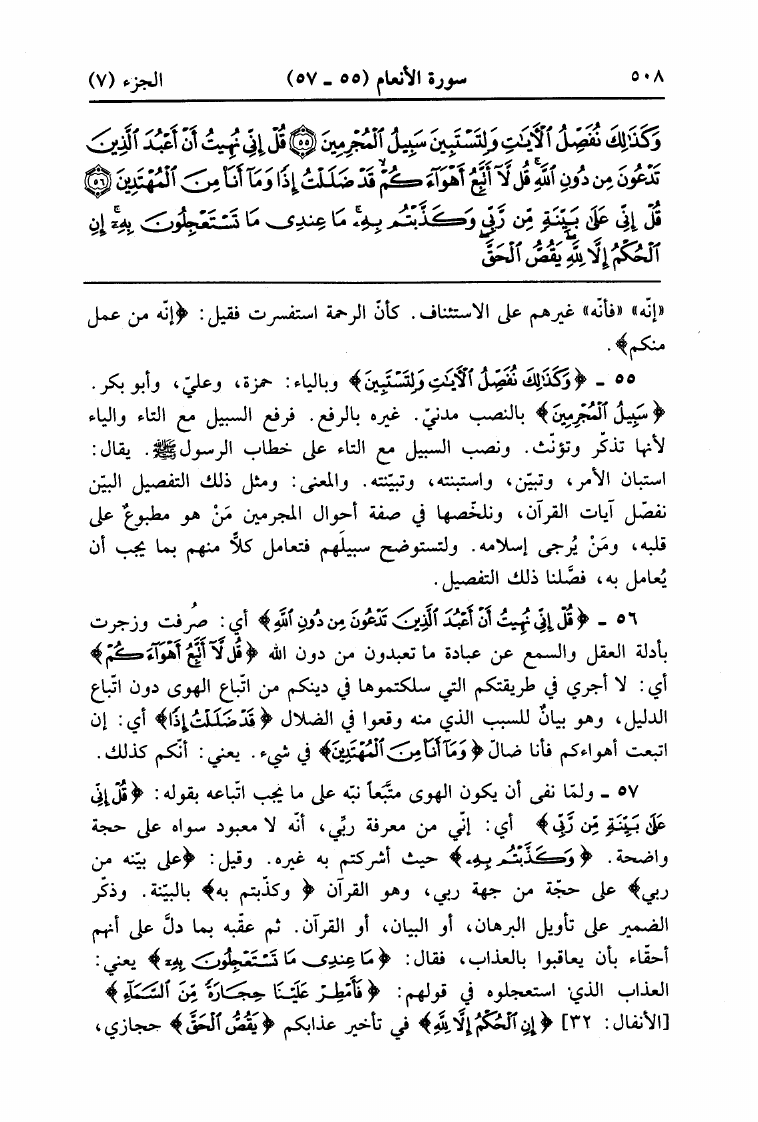 ٥٠٨ سورة الأنعام (٥٥ ـ ٥٧) الجزء (٧)
وَكَذَٰلِكَ نُفَصِّلُ ٱلْآيَٰتِ وَلِتَسْتَبِينَ سَبِيلُ ٱلْمُجْرِمِينَ ۝٥٥ قُلْ إِنِّي نُهِيتُ أَنْ أَعْبُدَ ٱلَّذِينَ
تَدْعُونَ مِن دُونِ ٱللَّهِ ۚ قُل لَّآ أَتَّبِعُ أَهْوَآءَكُمْ ۙ قَدْ ضَلَلْتُ إِذًا وَمَآ أَنَا۠ مِنَ ٱلْمُهْتَدِينَ ۝٥٦
قُلْ إِنِّي عَلَىٰ بَيِّنَةٍ مِّن رَّبِّي وَكَذَّبْتُم بِهِۦ ۚ مَا عِندِى مَا تَسْتَعْجِلُونَ بِهِۦٓ ۚ إِنِ
ٱلْحُكْمُ إِلَّا لِلَّهِ ۖ يَقُصُّ ٱلْحَقَّ ۖ
«إنّه» «فأنّه» غيرهم على الاستئناف. كأنّ الرحمة استفسرت فقيل: ﴿إنّه من عمل
منكم﴾.
٥٥ ـ ﴿وَكَذَٰلِكَ نُفَصِّلُ ٱلْآيَٰتِ وَلِتَسْتَبِينَ﴾ وبالياء: حمزة، وعليّ، وأبو بكر.
﴿سَبِيلُ ٱلْمُجْرِمِينَ﴾ بالنصب مدنيّ. غيره بالرفع. فرفع السبيل مع التاء والياء
لأنها تذكّر وتؤنّث. ونصب السبيل مع التاء على خطاب الرسول ﷺ. يقال:
استبان الأمر، وتبيّن، واستبنته، وتبيّنته. والمعنى: ومثل ذلك التفصيل البيّن
نفصّل آيات القرآن، ونلخّصها في صفة أحوال المجرمين مَنْ هو مطبوعٌ على
قلبه، ومَنْ يُرجى إسلامه. ولتستوضح سبيلَهم فتعامل كلاًّ منهم بما يجب أن
يُعامل به، فصَّلنا ذلك التفصيل.
٥٦ ـ ﴿قُلْ إِنِّي نُهِيتُ أَنْ أَعْبُدَ ٱلَّذِينَ تَدْعُونَ مِن دُونِ ٱللَّهِ﴾ أي: صُرفت وزجرت
بأدلة العقل والسمع عن عبادة ما تعبدون من دون الله ﴿قُل لَّآ أَتَّبِعُ أَهْوَآءَكُمْ﴾
أي: لا أجري في طريقتكم التي سلكتموها في دينكم من اتّباع الهوى دون اتّباع
الدليل، وهو بيانٌ للسبب الذي منه وقعوا في الضلال ﴿قَدْ ضَلَلْتُ إِذًا﴾ أي: إن
اتبعت أهواءكم فأنا ضالّ ﴿وَمَآ أَنَا۠ مِنَ ٱلْمُهْتَدِينَ﴾ في شيء. يعني: أنّكم كذلك.
٥٧ ـ ولمّا نفى أن يكون الهوى متَّبَعاً نبّه على ما يجب اتّباعه بقوله: ﴿قُلْ إِنِّي
عَلَىٰ بَيِّنَةٍ مِّن رَّبِّي﴾ أي: إنّي من معرفة ربّي، أنّه لا معبود سواه على حجة
واضحة. ﴿وَكَذَّبْتُم بِهِۦ﴾ حيث أشركتم به غيره. وقيل: ﴿على بيّنه من
ربي﴾ على حجّة من جهة ربي، وهو القرآن ﴿وكذّبتم به﴾ بالبيّنة. وذكّر
الضمير على تأويل البرهان، أو البيان، أو القرآن. ثم عقّبه بما دلَّ على أنهم
أحقّاء بأن يعاقبوا بالعذاب، فقال: ﴿مَا عِندِى مَا تَسْتَعْجِلُونَ بِهِۦٓ﴾ يعني:
العذاب الذي استعجلوه في قولهم: ﴿فَأَمْطِرْ عَلَيْنَا حِجَارَةً مِّنَ ٱلسَّمَآءِ﴾
[الأنفال: ٣٢] ﴿إِنِ ٱلْحُكْمُ إِلَّا لِلَّهِ﴾ في تأخير عذابكم ﴿يَقُصُّ ٱلْحَقَّ﴾ حجازي،